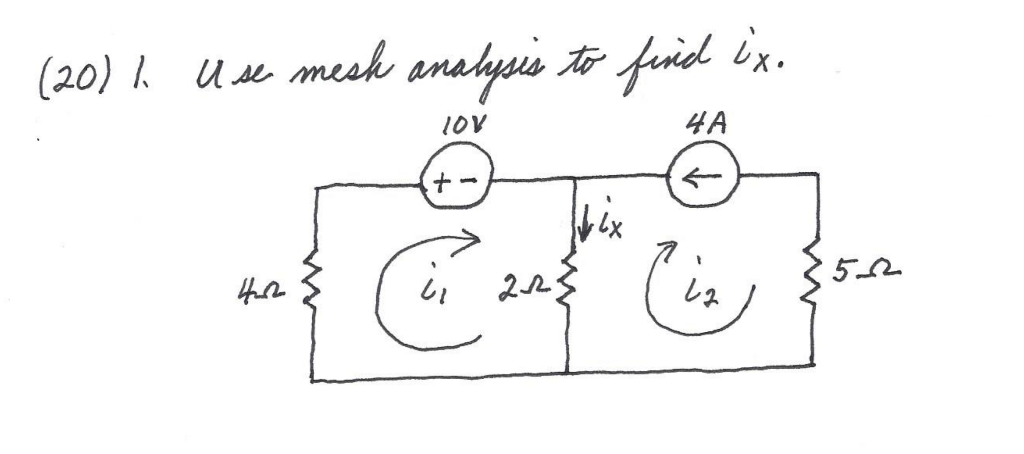 (20) 1. Use mesh analysis to find ix.
10V 4A
+ -
ix
4Ω i1 2Ω i2 5Ω